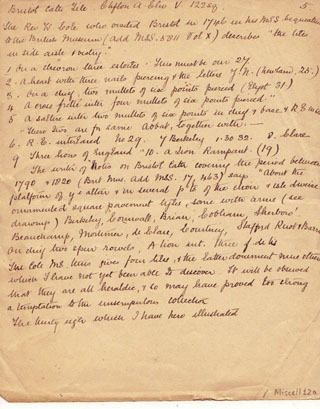 Bristol Cath Tile Clifton A Clio V 122 sq 5
The Rev W Cole who visited Bristol in 1746 in his MSS bequeathed
to the British Museum (Add MSS. 5811 Vol X) describes "the tiles
in side aisle & vestry:"
1. On a chevron three estoiles. This must be our 27
2. A heart with three nails piercing & the letters (Newland 25.)
3. On a chief, two mullets of six points pierced (Elyot 31)
4. A cross fretté with four mullets of six points pierced."
5. A saltire with two mullets of six points in chief & base & R E in
These two are for same Abbot, together with —
6. R.E. interlaced No 29. 7 Berkeley 1.30.32. 8. Clare
9. Three lions of England "10. a Lion Rampant (19)
The writer of Notes on Bristol Cath covering the period between
1790 & 1820 (Brit Mus. Add MSS. 17,463) says "About the
platform of ye altar & in several pts of the choir & isle divine
ornamented square pavement tyles, some with arms (see
drawings) Berkeley, Cornwall, Brian, Cobham,
Beauchamp, Mortimer, de Clare, Courtney, Stafford Knot &
On chief two spur rowels, A lion three
The Cole MS thus gives four tiles, & the latter document nine others
which I have not yet been able to discover. It will be observed
that they are all heraldic, & so may have proved too strong
a temptation to the unscrupulous collector
The thirty eight which I have here illustrated
Miscell 120